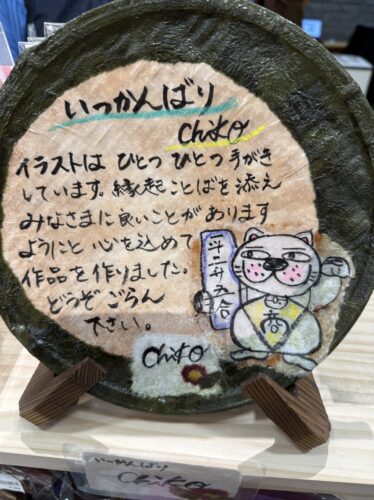 いっかんばり
chiKo
イラストは ひとつ ひとつ 手がき
しています。縁起ことばを添え
みなさまに良いことがあります
ようにと 心を込めて
作品を作りました。
どうぞ ごらん
下さい。
chiKo
いっかんばり
chiKo